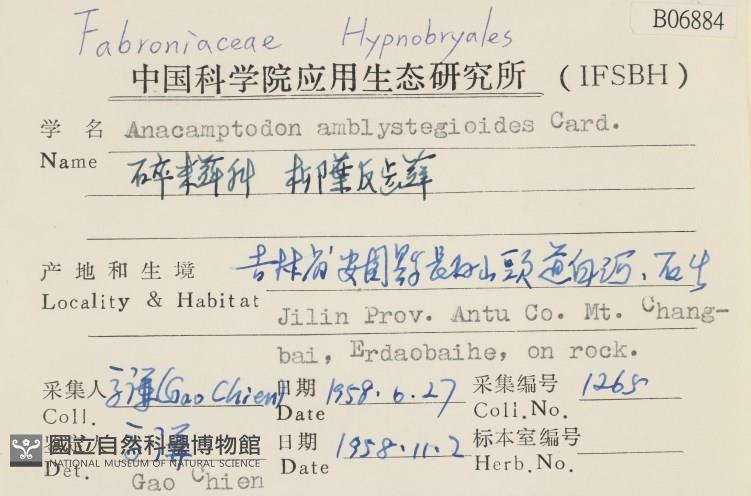 B06884
Fabroniaceae Hypnobryales
中国科学院应用生态研究所 (IFSBH)
学 名 Anacamptodon amblystegioides Card.
Name
碎米蘚科 柳葉反齿蘚
产地和生境 吉林省安图县長白山頭道白河、石生
Locality & Habitat
Jilin Prov. Antu Co. Mt. Chang-
bai, Erdaobaihe, on rock.
采集人 高谦(Gao Chien) 日期 1958.6.27 采集编号 1265
Coll. Date Coll.No.
高谦 日期 1958.11.2 标本室编号
Det. Gao Chien Date Herb.No.
國立自然科學博物館
NATIONAL MUSEUM OF NATURAL SCIENCE